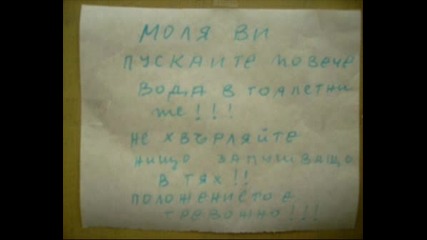 МОЛЯ ВИ
ПУСКАЙТЕ ПОВЕЧЕ
ВОДА В ТОАЛЕТНИ
ТЕ!!!
НЕ ХВЪРЛЯЙТЕ
НИЩО ЗАПУШВАЩО
В ТЯХ!!
ПОЛОЖЕНИЕТО Е
ТРЕВОЖНО!!!